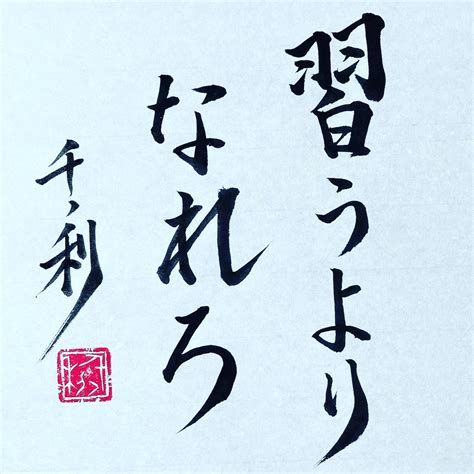 習うより
なれろ
千利